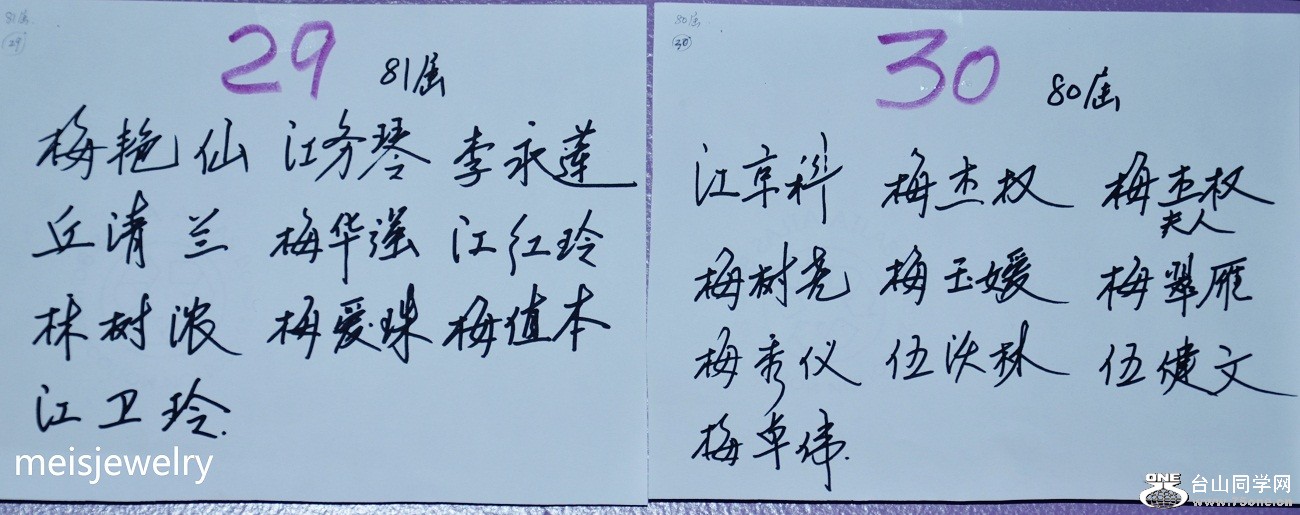 81届
29
29 81届
梅艳仙 江务琴 李永莲
丘清兰 梅华强 江红玲
林树浓 梅爱珠 梅值本
江卫玲.
meisjewelry
80届
30
30 80届
江京科 梅杰权 梅杰权
夫人
梅树尧 梅玉媛 梅翠雁
梅秀仪 伍沃林 伍健文
梅卓伟.
ONE 台山同学网